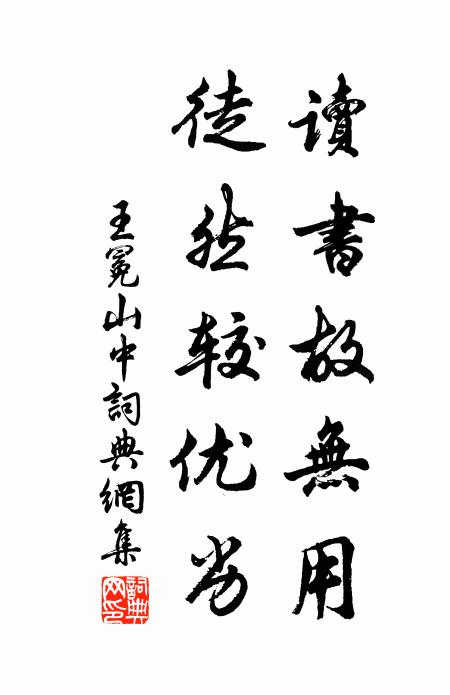 讀書故無用
徒然较优劣
王冕山中詞典網集
詞典网印